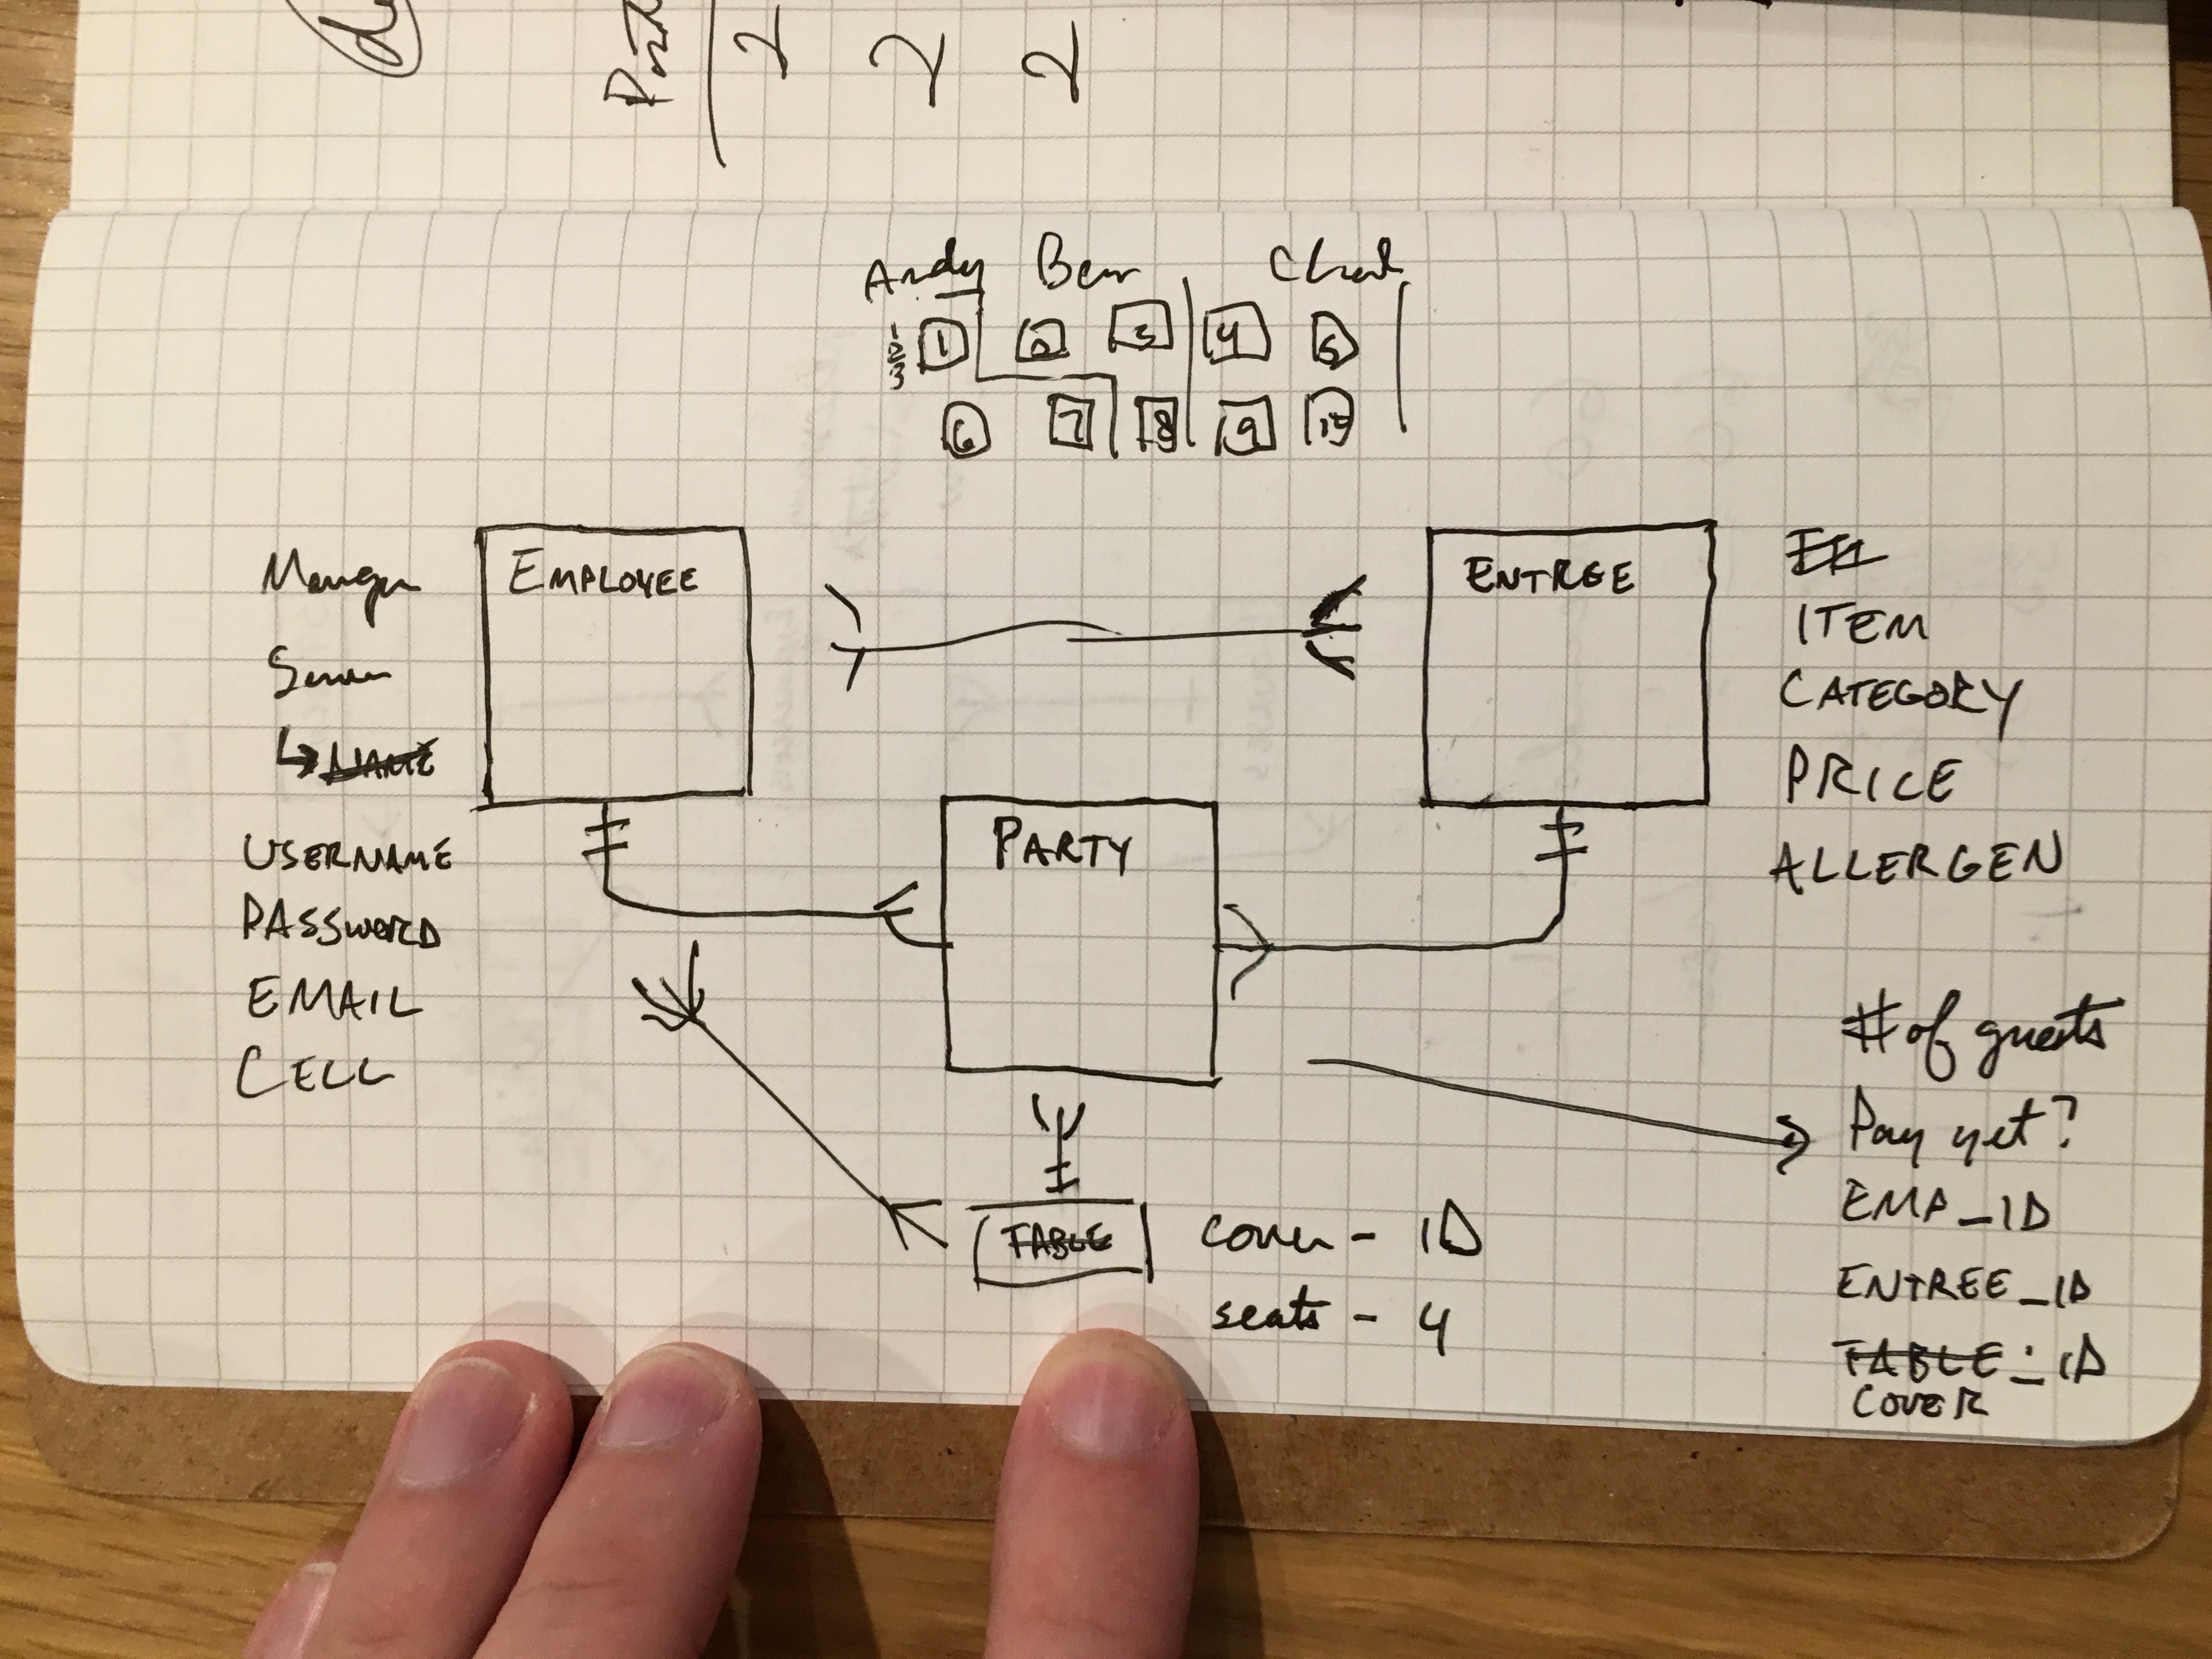 2 2 2
Andy Ben Chad
1 2 3 4 5
1
2
3
6 7 8 9 10
Manager
Server
NAME
USERNAME
PASSWORD
EMAIL
CELL
EMPLOYEE
ENTREE
ITEM
CATEGORY
PRICE
ALLERGEN
PARTY
# of guests
Pay yet?
EMP_ID
ENTREE_ID
TABLE_ID
COVER
TABLE
cover - 10
seats - 4